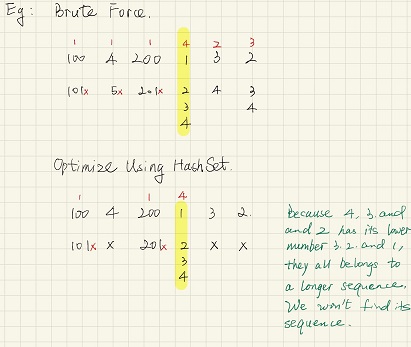 Eg: Brute Force.
1 1 1 4 2 3
100 4 200 1 3 2
101x 5x 201x 2 4 3
3 4
4
Optimize Using HashSet.
1 1 4
100 4 200 1 3 2.
101x x 201x 2 x x
3
4
Because 4, 3. and
and 2 has its lower
number 3. 2. and 1,
they all belongs to
a longer sequence.
We won't find its
sequence.